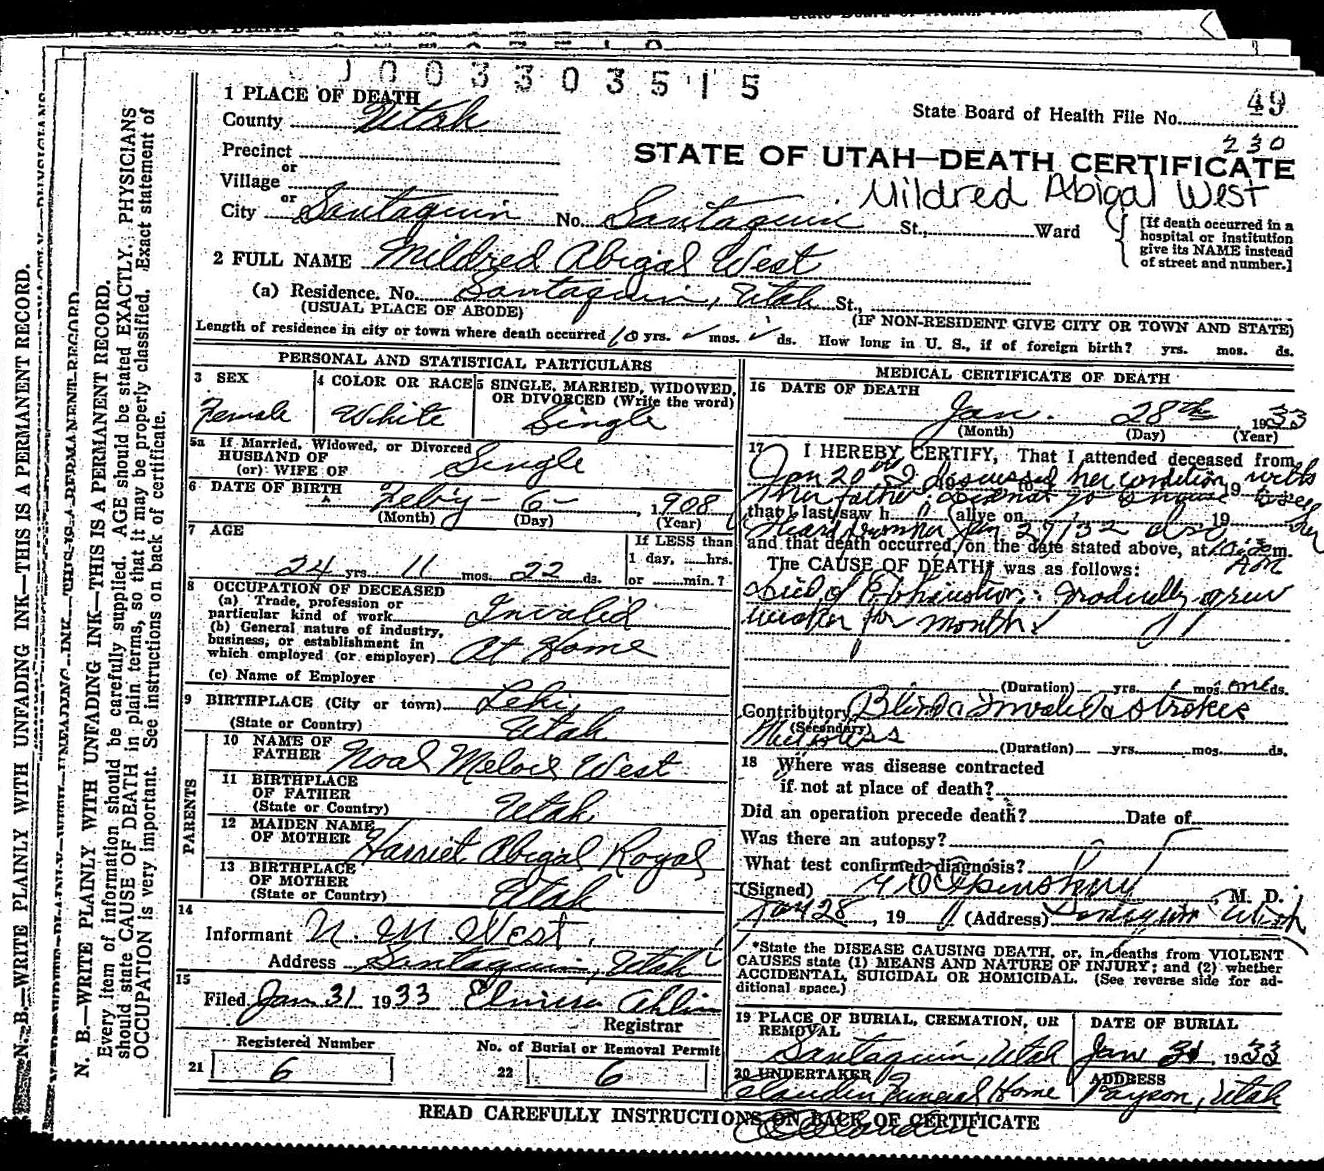 1003303515
1 PLACE OF DEATH
County Utah
State Board of Health File No. 49
230
Precinct
or
Village
or
STATE OF UTAH—DEATH CERTIFICATE
Mildred Abigal West
City Santaquin No. Santaquin St., Ward
[If death occurred in a
hospital or institution
give its NAME instead
of street and number.]
2 FULL NAME Mildred Abigal West
(a) Residence. No. Santaquin, Utah St.,
(USUAL PLACE OF ABODE)
(IF NON-RESIDENT GIVE CITY OR TOWN AND STATE)
Length of residence in city or town where death occurred 10 yrs. mos. ds. How long in U. S., if of foreign birth? yrs. mos. ds.
PERSONAL AND STATISTICAL PARTICULARS
3 SEX
Female
4 COLOR OR RACE
White
5 SINGLE, MARRIED, WIDOWED,
OR DIVORCED (Write the word)
Single
5a If Married, Widowed, or Divorced
HUSBAND OF
(or) WIFE OF Single
6 DATE OF BIRTH Feb'y - 6 - , 1908
(Month) (Day) (Year)
7 AGE
24 yrs. 11 mos. 22 ds.
If LESS than
1 day, hrs.
or min.?
8 OCCUPATION OF DECEASED
(a) Trade, profession or
particular kind of work Invalid
(b) General nature of industry,
business, or establishment in
which employed (or employer) At Home
(c) Name of Employer
9 BIRTHPLACE (City or town) Lehi,
(State or Country) Utah
PARENTS
10 NAME OF
FATHER Noal West
11 BIRTHPLACE
OF FATHER
(State or Country) Utah
12 MAIDEN NAME
OF MOTHER Harriet Abigal Royal
13 BIRTHPLACE
OF MOTHER
(State or Country) Utah
14
Informant N. M. West.
Address Santaquin, Utah
15
Filed Jan 31 1933 Elmira Ahlin
Registrar
Registered Number
21 6
No. of Burial or Removal Permit
22 6
MEDICAL CERTIFICATE OF DEATH
16 DATE OF DEATH
Jan. 28th, 1933
(Month) (Day) (Year)
17 I HEREBY CERTIFY, That I attended deceased from
Jan 20 I discussed her condition with
her father. Did not go to house to see
that I last saw h alive on 19 her
Jan 27/32 also
and that death occurred, on the date stated above, at m.
The CAUSE OF DEATH* was as follows:
Died of Exhaustion: Gradually grew
weaker for months
(Duration) yrs. mos. ds.
Contributory Blind Invalid
(Secondary)
(Duration) yrs. mos. ds.
18 Where was disease contracted
if not at place of death?
Did an operation precede death? Date of
Was there an autopsy?
What test confirmed diagnosis?
(Signed) M. D.
Jan 28, 19 (Address) Santaquin Utah
*State the DISEASE CAUSING DEATH, or, in deaths from VIOLENT
CAUSES state (1) MEANS AND NATURE OF INJURY; and (2) whether
ACCIDENTAL, SUICIDAL OR HOMICIDAL. (See reverse side for ad-
ditional space.)
19 PLACE OF BURIAL, CREMATION, OR
REMOVAL
Santaquin, Utah
DATE OF BURIAL
Jan 31 1933
20 UNDERTAKER
Claudin Funeral Home
ADDRESS
Payson, Utah
READ CAREFULLY INSTRUCTIONS ON BACK OF CERTIFICATE
N. B.—WRITE PLAINLY WITH UNFADING INK—THIS IS A PERMANENT RECORD.
N. B.—WRITE PLAINLY WITH UNFADING INK—THIS IS A PERMANENT RECORD.
Every item of information should be carefully supplied. AGE should be stated EXACTLY. PHYSICIANS
should state CAUSE OF DEATH in plain terms, so that it may be properly classified. Exact statement of
OCCUPATION is very important. See instructions on back of certificate.